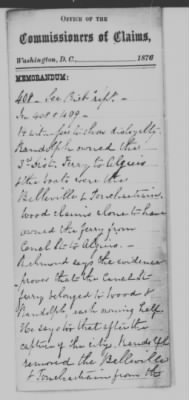 OFFICE OF THE
Commissioners of Claims,
Washington, D.C., 1876
MEMORANDUM:
408 - See Rich rept.
In 408 & 409 -
to show disloyalty
Randolph owned the
3d Dist. Ferry to Algiers
& the boats were the
Belleville & Ponchartrain.
Wood claims alone to have
owned the ferry from
Canal St to Algiers.
Richmond says the evidence
proves that the Canal St
ferry belonged to Wood &
Randolph, each owning half.
He says also that after the
capture of the city, Randolph
removed the Belleville
& Ponchartrain from the